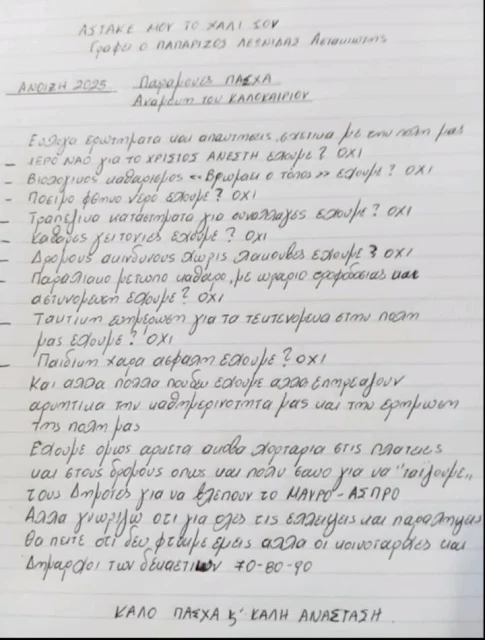 ΑΣΤΑΚΕ ΜΟΥ ΤΟ ΧΑΛΙ ΣΟΥ
Γραφει ο ΠΑΠΑΡΙΖΟΣ ΛΕΩΝΙΔΑΣ Αστακιωτης
ΑΝΟΙΞΗ 2025 Παραμονες ΠΑΣΧΑ
Αναμονη του ΚΑΛΟΚΑΙΡΙΟΥ
Ευλογα ερωτηματα και απαντησεις σχετικα με την πολη μας
- ΙΕΡΟ ΝΑΟ για το ΧΡΙΣΤΟΣ ΑΝΕΣΤΗ εχουμε? ΟΧΙ
- Βιολογικος καθαρισμος «Βρωμαει ο τοπος» εχουμε? ΟΧΙ
- Ποσιμο φθηνο νερο εχουμε? ΟΧΙ
- Τραπεζικα καταστηματα για συναλλαγες εχουμε? ΟΧΙ
- Καθαρες γειτονιες εχουμε? ΟΧΙ
- Δρομους ακινδυνους χωρις λακουβες εχουμε? ΟΧΙ
- Παραλιακο μετωπο καθαρο, με ωραριο τροφοδοσιας και
αστυνομευση εχουμε? ΟΧΙ
- Τακτικη ενημερωση για τα τεκτενομενα στην πολη
μας εχουμε? ΟΧΙ
- Παιδικη χαρα ασφαλη εχουμε? ΟΧΙ
Και αλλα πολλα που δεν εχουμε αλλα επηρεαζουν
αρνητικα την καθημερινοτητα μας και την ερημωση
της πολη μας
Εχουμε ομως αρκετα ακοβα χορταρια στις πλατειες
και στους δρομους οπως και πολυ σανο για να "ταϊζουμε"
τους Δημοτες για να βλεπουν το ΜΑΥΡΟ - ΑΣΠΡΟ
Αλλα γνωριζω οτι για ολες τις ελλειψεις και παραληψεις
θα πειτε οτι δεν φταιμε εμεις αλλα οι κοινοταρχες και
Δημαρχοι των δεκαετιων 70-80-90
ΚΑΛΟ ΠΑΣΧΑ & ΚΑΛΗ ΑΝΑΣΤΑΣΗ